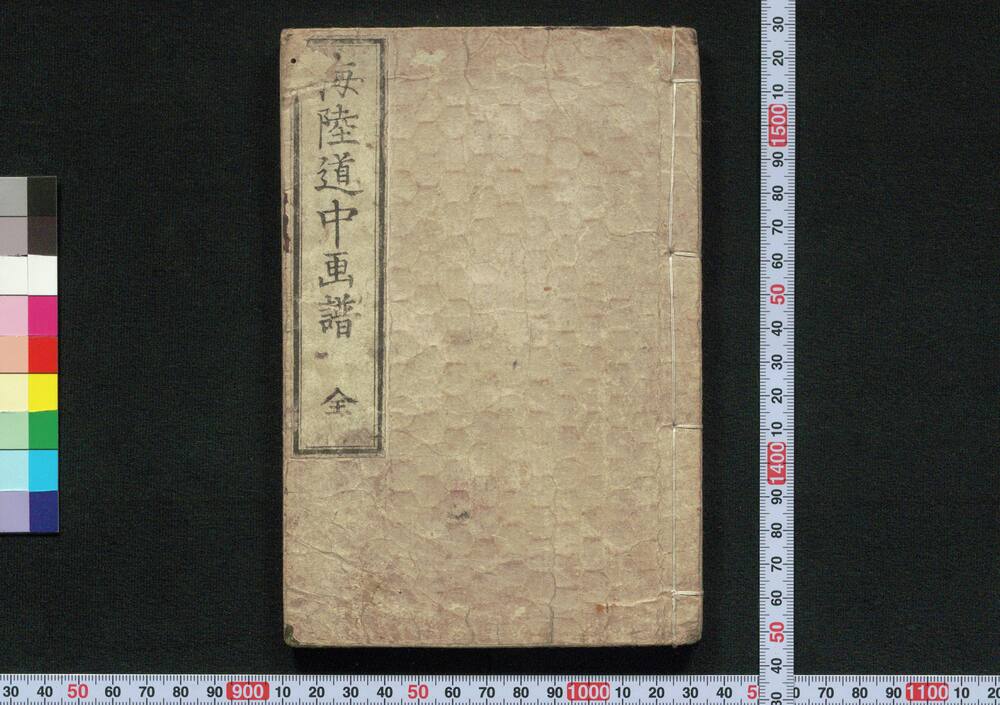 海陸道中画譜 全
30 20 10 1500 90 80 70 60 50 40 30 20 10 1400 90 80 70 60 50 40 30
30 40 50 60 70 80 90 900 10 20 30 40 50 60 70 80 90 1000 10 20 30 40 5 0 70 80 90 1100 10 20